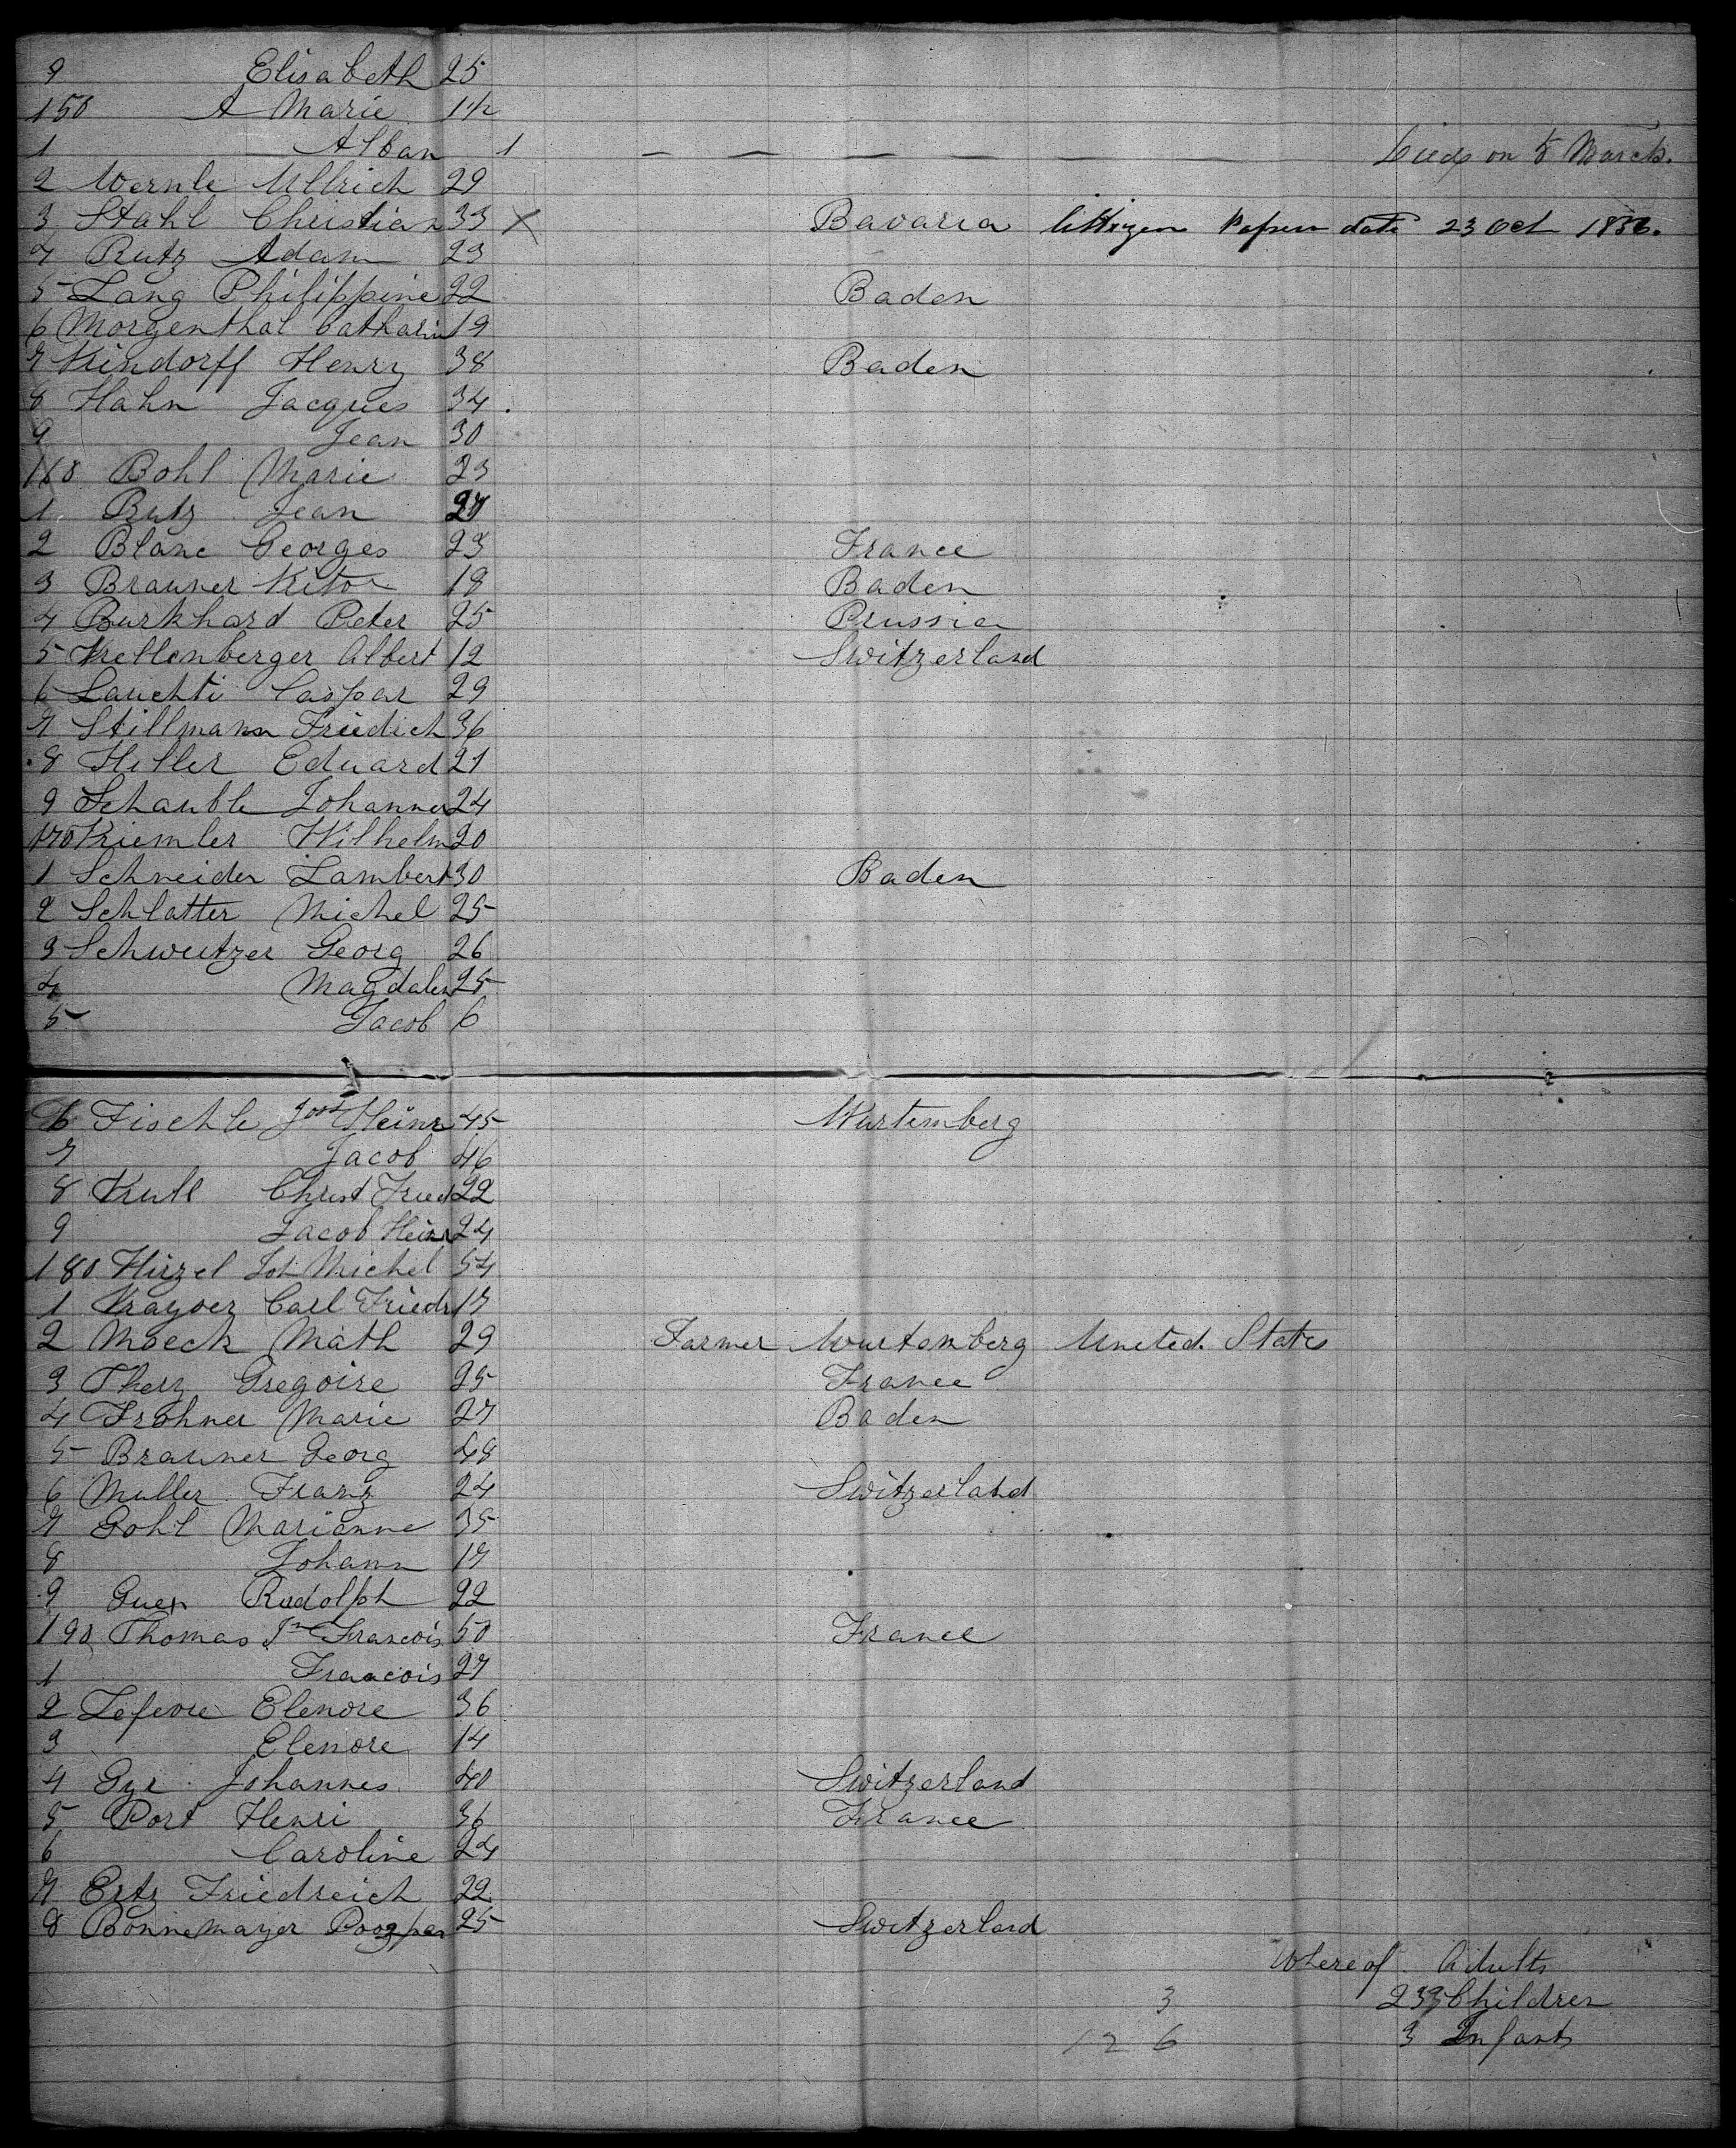 9 Elisabeth 25
150 A Marie 1 1/2
1 Alban 1 — — — — — on 5 March.
2 Wernle Ullrich 29
3 Stahl Christian 33 X Bavaria Cittizen Papers date 23 Oct 1856.
4 Rutz Adam 23
5 Lang Philippine 22 Baden
6 Morgenthal Catharin 19
7 Kindorff Henry 38 Baden
8 Hahn Jacques 34
9 Jean 30
160 Bohl Marie 23
1 Rutz Jean
2 Blanc Georges 23 France
3 Brauner 18 Baden
4 Burkhard Peter 25 Prussia
5 Kellenberger Albert 12 Switzerland
6 Lauchti Caspar 29
7 Stillmann Friedich 36
8 Heller Eduard 21
9 Schauble Johannes 24
170 Kiemler Wilhelm 20
1 Schneider Lambert 30 Baden
2 Schlatter Michel 25
3 Schweitzer Georg 26
4 Magdalen 25
5 Jacob 6
6 Fischle Jost Heinr 45 Wurtemberg
7 Jacob 46
8 Krull Christ Fried 22
9 Jacob Heinr 24
180 Hirzel Joh Michel 54
1 Carl Friedr 17
2 Moeck Math 29 Farmer Wurtemberg United States
3 Therz Gregoire 25 France
4 Frohner Marie 27 Baden
5 Brauner Georg 48
6 Muller Franz 24 Switzerland
7 Gohl Marianne 35
8 Johann 17
9 Rudolph 22
190 Thomas Jn Francois 50 France
1 Francois 27
2 Lefevre Elenore 36
3 Elenore 14
4 Gyr Johannes 40 Switzerland
5 Port Henri 36 France
6 Caroline 24
7 Ertz Friedreich 22
8 Bonnemayer Prosper 25 Switzerland
Whereof Adults
3 23 Children
12 6 3 Infants